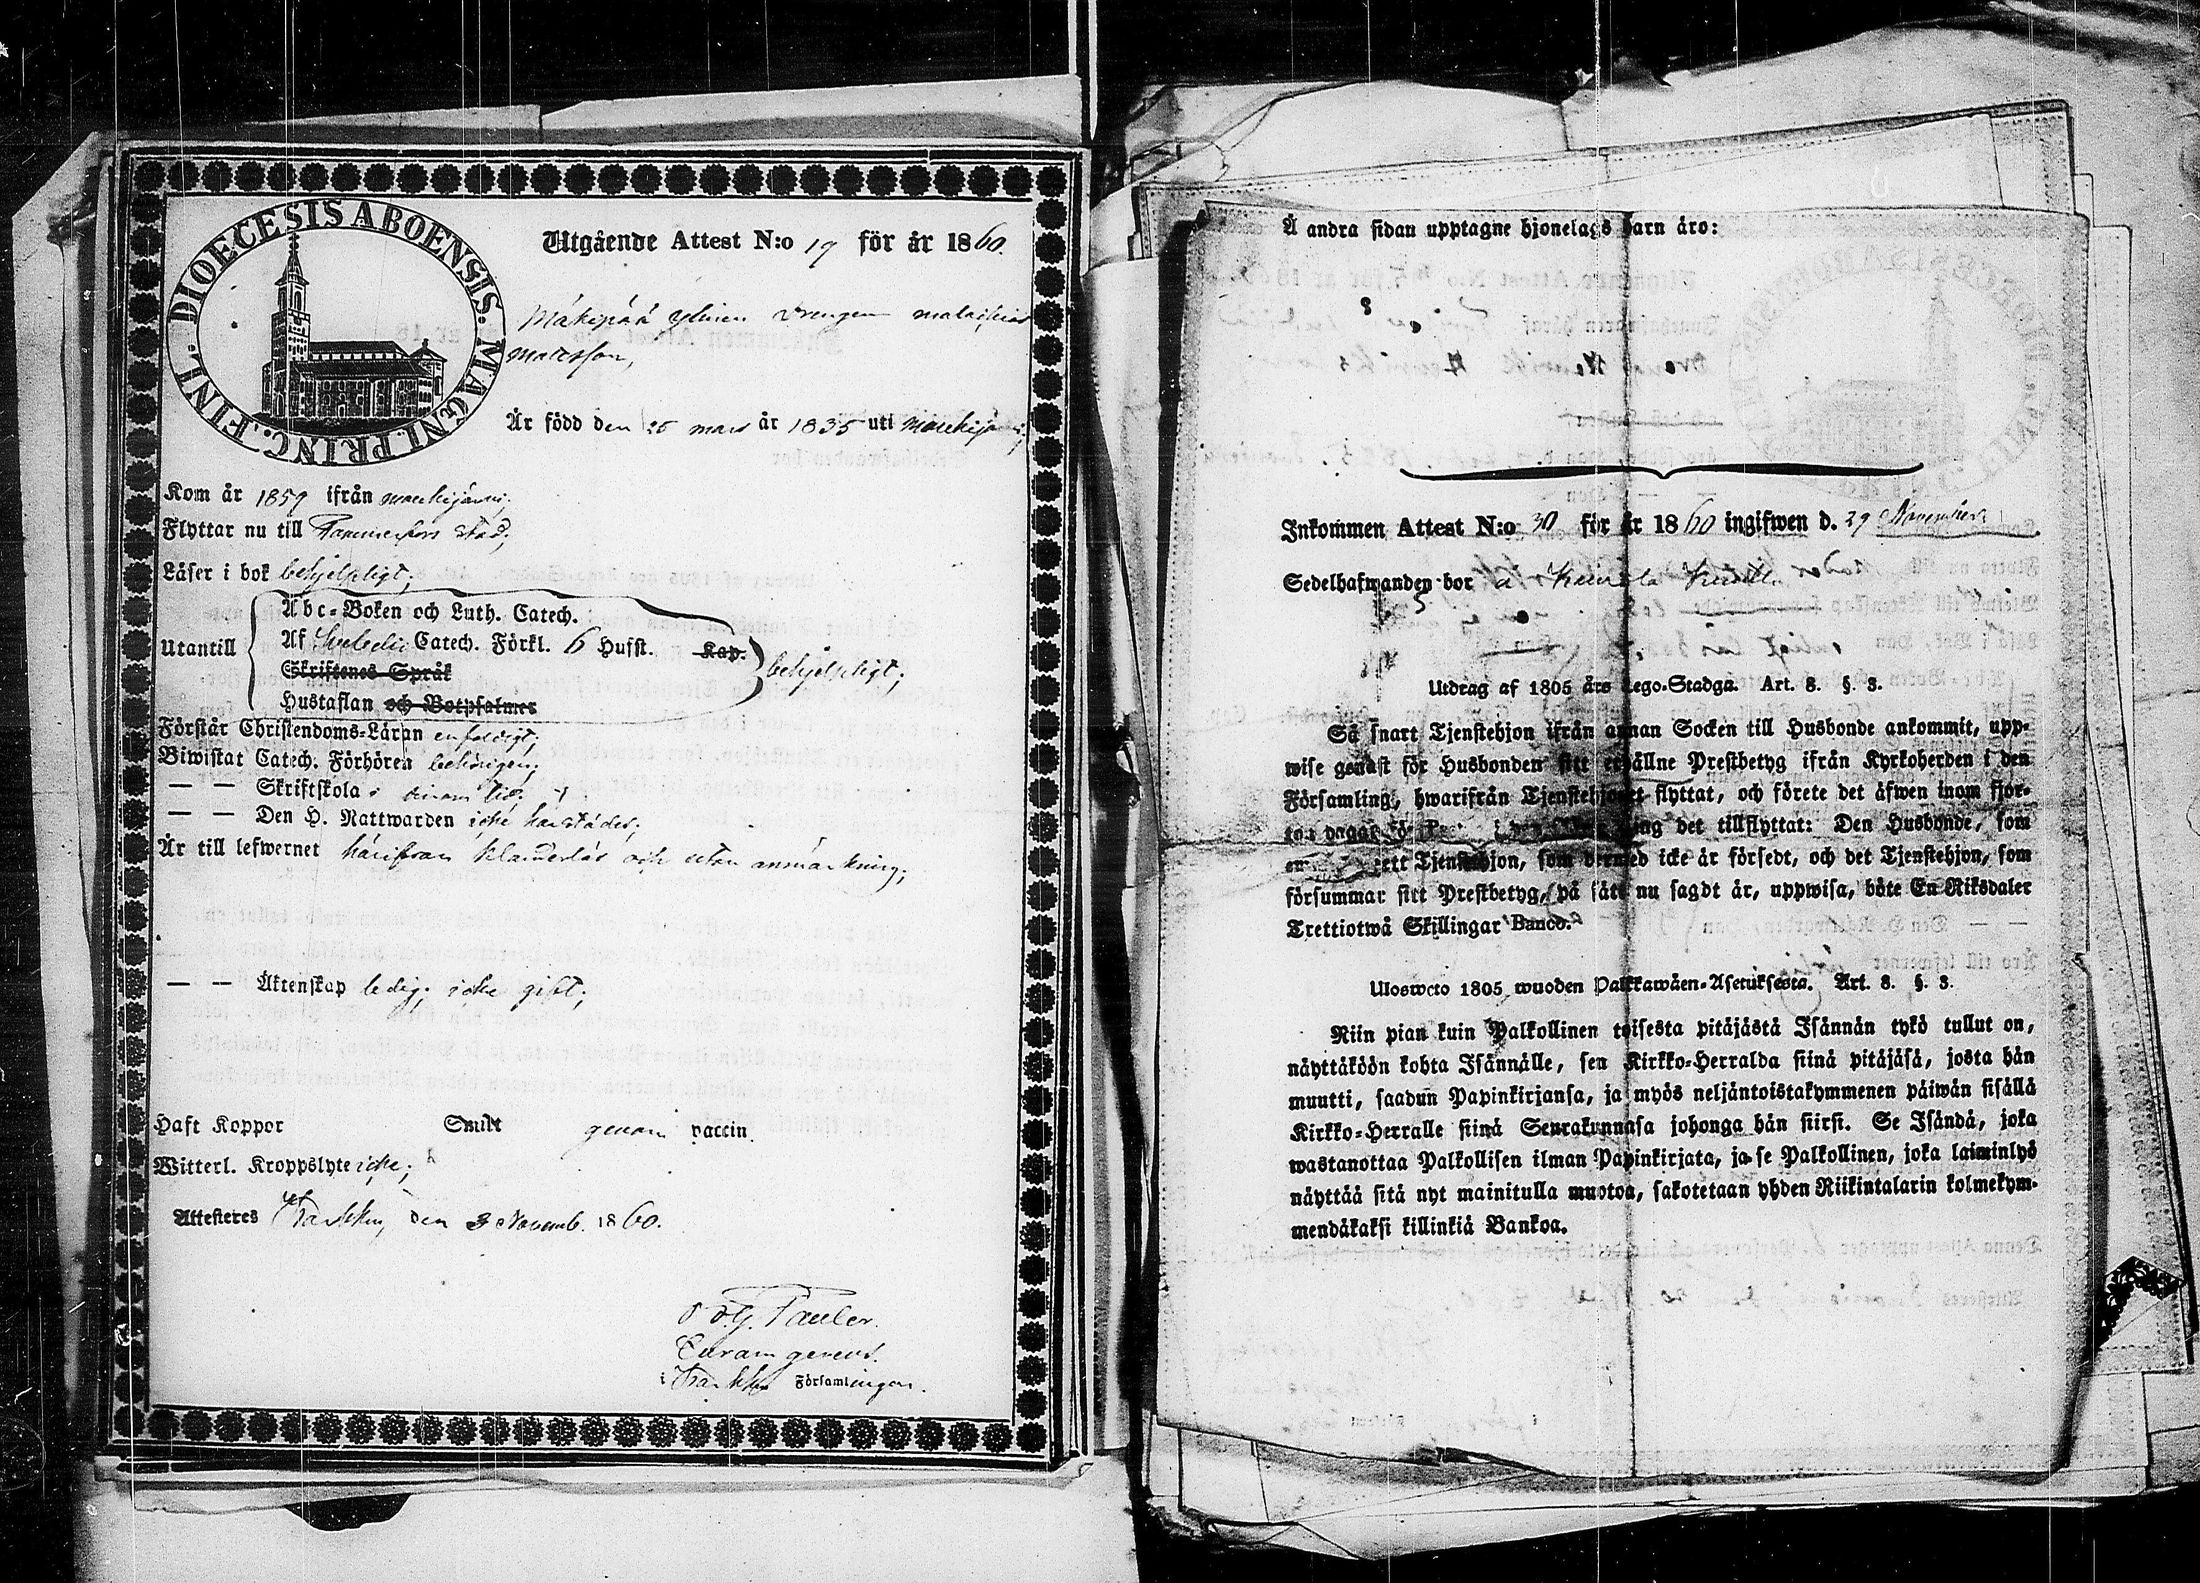 DIOECESIS ABOENSIS. MAGNI. PRINC. FINL.
Utgående Attest N:o 19 för år 1860.
Mäkipää ylinen Drengen malachias
mattsson,
Är född den 25 mars år 1835 uti mouhijärvi;
Kom år 1859 ifrån mouhijärvi;
Flyttar nu till Tammerfors stad;
Läser i bok behjelpligt;
Utantill
Abc-Boken och Luth. Catech.
Af Svebelii Catech. Förkl. 6 Hufst. Kap.
Skriftenes Språk
Hustaflan och Botpsalmer
behjelpligt;
Förstår Christendoms-Läran enfaldigt;
Biwistat Catech. Förhören behörigen;
— — Skriftskola i sinom tid;
— — Den H. Nattwarden icke härstädes;
Är till lefwernet härifrån klanderlös och utan anmärkning;
— — Äktenskap ledig; icke gift;
Haft Koppor Smitt genom vaccin.
Witterl. Kroppslyte icke;
Attesteres Karkku, den 3 Novemb. 1860.
Pauler.
Curam gerens.
i Karkku Församlingen.
Å andra sidan upptagne hjonelags barn äro:
Inkommen Attest N:o 30 för år 1860 ingifwen d. 29 November
Sedelhafwanden bor å
Utdrag af 1805 års Lego-Stadga. Art. 8. §. 3.
Så snart Tjenstehjon ifrån annan Socken till Husbonde ankommit, upp-
wise genast för Husbonden sitt erhållne Prestbetyg ifrån Kyrkoherden i den
Församling, hwarifrån Tjenstehjonet flyttat, och förete det äfwen inom fjor-
ton dagar det tillflyttat: Den Husbonde, som
Tjenstehjon, som dermed icke är försedt, och det Tjenstehjon, som
försummar sitt Prestbetyg, på sätt nu sagdt är, uppwisa, böte En Riksdaler
Trettiotwå Skillingar Banco.
Ulosweto 1805 wuoden Palkkawäen-Asetuksesta. Art. 8. §. 3.
Niin pian kuin Palkollinen toisesta pitäjästä Isännän tykö tullut on,
näyttäköön kohta Isännälle, sen Kirkko-Herralda siinä pitäjäsä, josta hän
muutti, saadun Papinkirjansa, ja myös neljäntoistakymmenen päiwän sisällä
Kirkko-Herralle siinä Seurakunnasa johonga hän siirsi. Se Isändä, joka
wastanottaa Palkollisen ilman Papinkirjata, ja se Palkollinen, joka laiminlyö
näyttää sitä nyt mainitulla muotoa, sakotetaan yhden Riikintalarin kolmekym-
mendäkaksi killinkiä Bankoa.